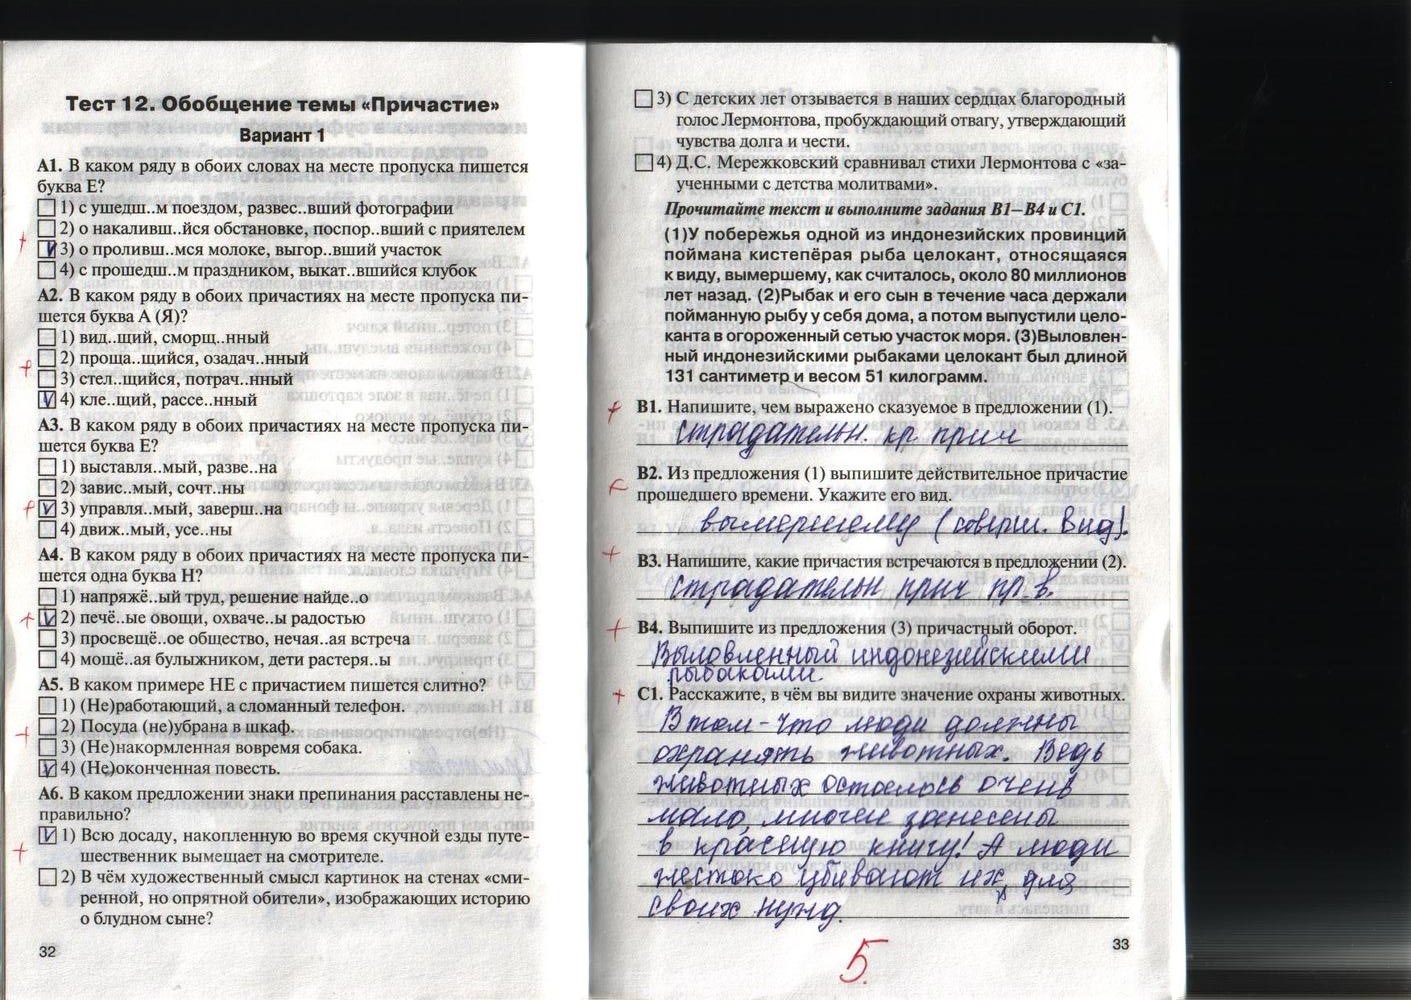 Тест 12. Обобщение темы «Причастие»
Вариант 1
А1. В каком ряду в обоих словах на месте пропуска пишется
буква Е?
1) с ушедш..м поездом, развес..вший фотографии
2) о накаливш..йся обстановке, поспор..вший с приятелем
3) о проливш..мся молоке, выгор..вший участок
4) с прошедш..м праздником, выкат..вшийся клубок
А2. В каком ряду в обоих причастиях на месте пропуска пи-
шется буква А (Я)?
1) вид..щий, сморщ..нный
2) проша..щийся, озадач..нный
3) стел..щийся, потрач..нный
4) кле..щий, рассе..нный
А3. В каком ряду в обоих причастиях на месте пропуска пи-
шется буква Е?
1) выставля..мый, разве..на
2) завис..мый, сочт..ны
3) управля..мый, заверш..на
4) движ..мый, усе..ны
А4. В каком ряду в обоих причастиях на месте пропуска пи-
шется одна буква Н?
1) напряжё..ый труд, решение найде..о
2) печё..ые овощи, охваче..ы радостью
3) просвещё..ое общество, нечая..ая встреча
4) мощё..ая булыжником, дети растеря..ы
А5. В каком примере НЕ с причастием пишется слитно?
1) (Не)работающий, а сломанный телефон.
2) Посуда (не)убрана в шкаф.
3) (Не)накормленная вовремя собака.
4) (Не)оконченная повесть.
А6. В каком предложении знаки препинания расставлены не-
правильно?
1) Всю досаду, накопленную во время скучной езды путе-
шественник вымещает на смотрителе.
2) В чём художественный смысл картинок на стенах «сми-
ренной, но опрятной обители», изображающих историю
о блудном сыне?
32
3) С детских лет отзывается в наших сердцах благородный
голос Лермонтова, пробуждающий отвагу, утверждающий
чувства долга и чести.
4) Д.С. Мережковский сравнивал стихи Лермонтова с «за-
ученными с детства молитвами».
Прочитайте текст и выполните задания В1—В4 и С1.
(1)У побережья одной из индонезийских провинций
поймана кистепёрая рыба целокант, относящаяся
к виду, вымершему, как считалось, около 80 миллионов
лет назад. (2)Рыбак и его сын в течение часа держали
пойманную рыбу у себя дома, а потом выпустили цело-
канта в огороженный сетью участок моря. (3)Выловлен-
ный индонезийскими рыбаками целокант был длиной
131 сантиметр и весом 51 килограмм.
В1. Напишите, чем выражено сказуемое в предложении (1).
страдательн. кр прич
В2. Из предложения (1) выпишите действительное причастие
прошедшего времени. Укажите его вид.
вымершему (соверш. вид).
В3. Напишите, какие причастия встречаются в предложении (2).
страдательн прич пр. в.
В4. Выпишите из предложения (3) причастный оборот.
Выловленный индонезийскими
рыбаками.
С1. Расскажите, в чём вы видите значение охраны животных.
В том-что люди должны
охранять животных. Ведь
животных осталось очень
мало, многие занесены
в красную книгу! А люди
жестоко убивают их, для
своих нужд.
33
5.